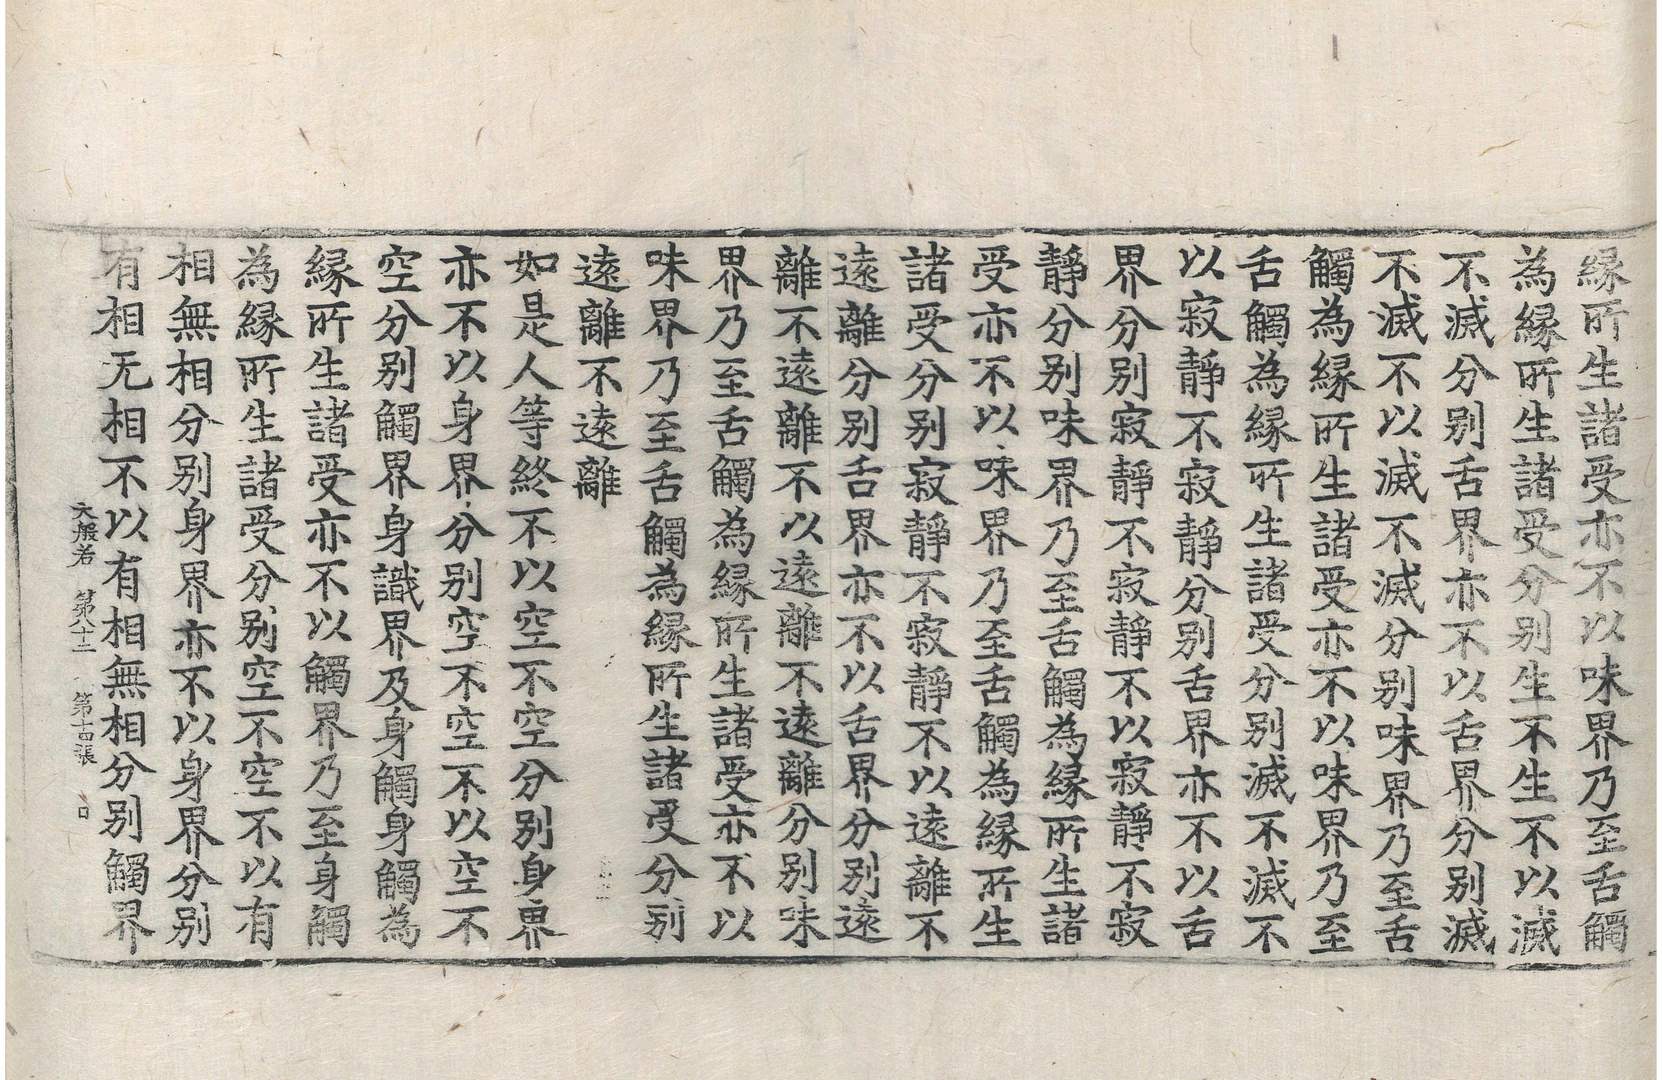 緣所生諸受亦不以味界乃至舌觸
為緣所生諸受分別生不生不以滅
不滅分別舌界亦不以舌界分別滅
不滅不以滅不滅分別味界乃至舌
觸為緣所生諸受亦不以味界乃至
舌觸為緣所生諸受分別滅不滅不
以寂靜不寂靜分別舌界亦不以舌
界分別寂靜不寂靜不以寂靜不寂
靜分別味界乃至舌觸為緣所生諸
受亦不以味界乃至舌觸為緣所生
諸受分別寂靜不寂靜不以遠離不
遠離分別舌界亦不以舌界分別遠
離不遠離不以遠離不遠離分別味
界乃至舌觸為緣所生諸受亦不以
味界乃至舌觸為緣所生諸受分別
遠離不遠離
如是人等終不以空不空分別身界
亦不以身界分別空不空不以空不
空分別觸界身識界及身觸身觸為
緣所生諸受亦不以觸界乃至身觸
為緣所生諸受分別空不空不以有
相無相分別身界亦不以身界分別
有相无相不以有相無相分別觸界
大般若 第八十二 第十四張 口